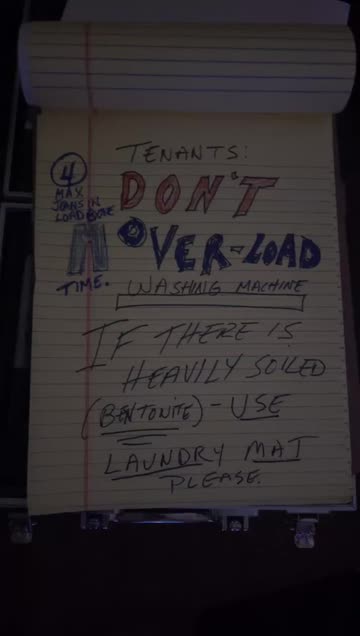 TENANTS:
DON'T
OVER-LOAD
WASHING MACHINE
4
MAX
JEANS IN
LOAD @ONE
TIME.
IF THERE IS
HEAVILY SOILED
(BENTONITE) - USE
LAUNDRY MAT
PLEASE.